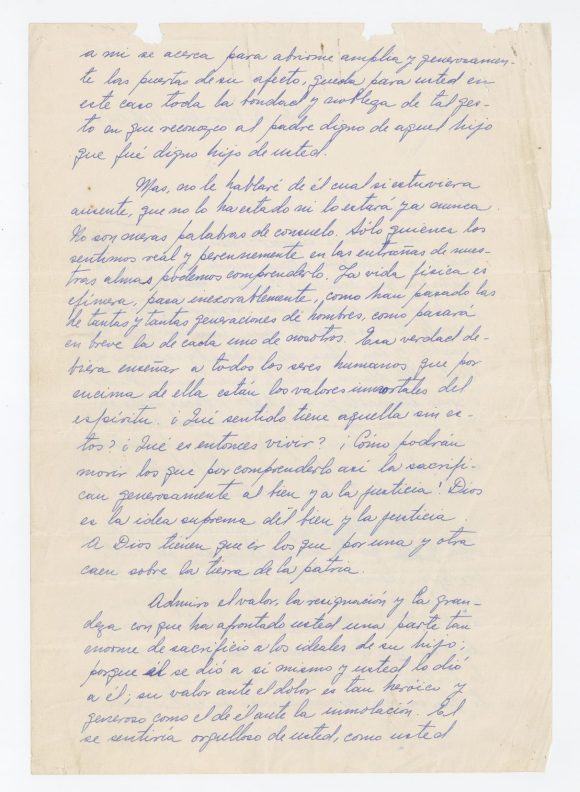 a mi se acerca para abrirme amplia y generosamen-
te las puertas de su afecto, queda para usted en
este caso toda la bondad y nobleza de tal ges-
to en que reconozco al padre digno de aquel hijo
que fué digno hijo de usted.
Mas, no le hablaré de él cual si estuviera
ausente, que no lo ha estado ni lo estará ya nunca.
No son meras palabras de consuelo. Sólo quienes los
sentimos real y perennemente en las entrañas de nues-
tras almas podemos comprenderlo. La vida física es
efímera, pasa inexorablemente, como han pasado las
de tantas y tantas generaciones de hombres, como pasará
en breve la de cada uno de nosotros. Esa verdad de-
biera enseñar a todos los seres humanos que por
encima de ella están los valores inmortales del
espíritu. ¿Qué sentido tiene aquella sin es-
tos? ¿Qué es entonces vivir? ¡Cómo podrán
morir los que por comprenderlo así la sacrifi-
can generosamente al bien y a la justicia! Dios
es la idea suprema del bien y la justicia.
A Dios tienen que ir los que por una y otra
caen sobre la tierra de la patria.
Admiro el valor, la resignación y la gran-
deza con que ha afrontado usted una parte tan
enorme de sacrificio a los ideales de su hijo;
porque él se dió a si mismo y usted lo dió
a él; su valor ante el dolor es tan heróico y
generoso como el de él ante la inmolación. El
se sentiría orgulloso de usted, como usted